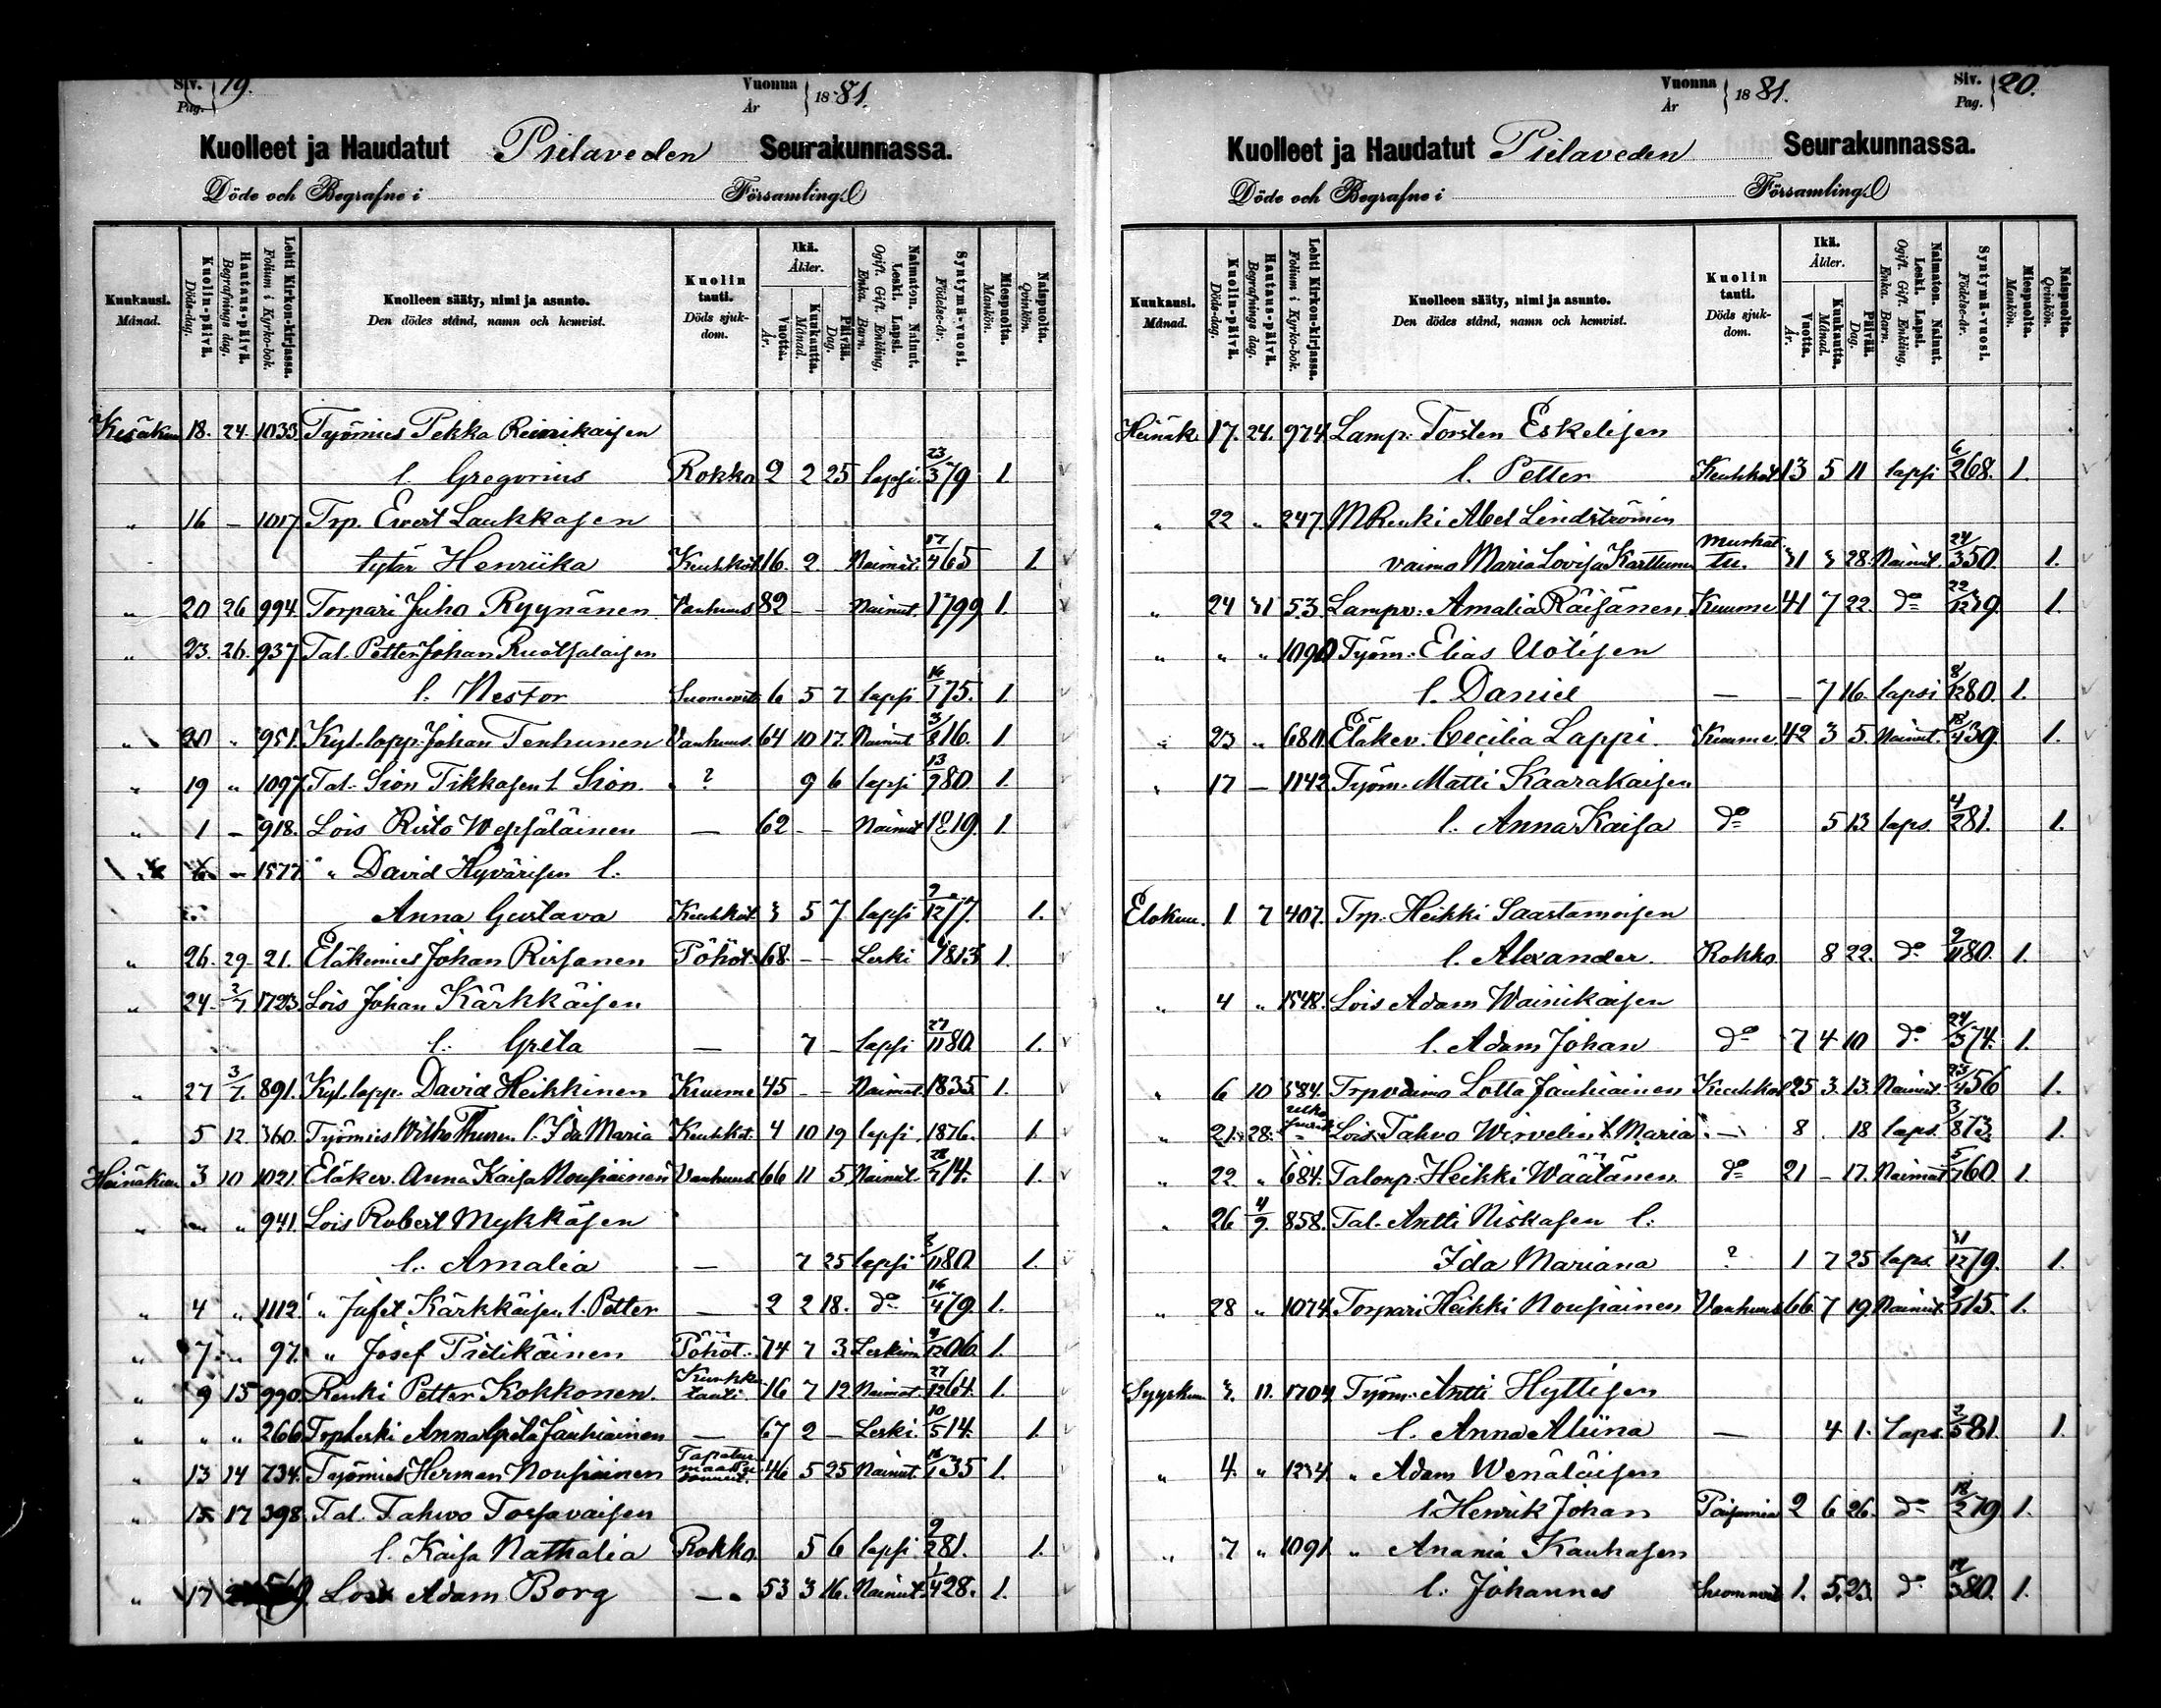 Siv. Pag. 19.
Vuonna År 1881.
Kuolleet ja Haudatut Pielaveden Seurakunnassa.
Döde och Begrafne i Församling
Kuukausi. Månad.
Kuolin-päivä. Döds-dag.
Hautaus-päivä. Begrafnings dag.
Lehti Kirkon-kirjassa. Folium i Kyrko-bok.
Kuolleen sääty, nimi ja asunto. Den dödes stånd, namn och hemvist.
Kuolin tauti. Döds sjukdom.
Ikä. Ålder.
Vuotta. År.
Kuukautta. Månad.
Päivää. Dag.
Naimaton. Nainut. Leski. Lapsi. Ogift. Gift. Enkling, Enka. Barn.
Syntymä-vuosi. Födelse-år.
Miespuolta. Mankön.
Naispuolta. Qvinkön.
Kesäkuu 18. 24. 1033 Työmies Pekka
l. Gregorius Rokko 2 2 25 lapsi 23/3 79 1.
" 16 – 1017 Trp. Evert Laukkasen
tytär Henriika Keuhkot. 16. 2 17/4 65 1.
" 20 26 994 Torpari Juho Ryynänen Vanhuus 82 – – Nainut. 1799 1.
" 23. 26. 937 Tal. Petter Johan Ruotsalaisen
l. Nestor 6 5 7 lapsi 16/1 75. 1.
" 20 " 951. Kyl. lapp. Johan Tenhunen Vanhuus. 64 10 17. Nainut 3/8 16. 1.
" 19 " 1097 Tal. Sion Tikkasen l. Sion ? 9 6 lapsi 13/9 80. 1.
" 1 – 918. Lois Risto Wepsäläinen — 62 – – Nainut 1819 1
6 – 1577 " David Hyvärisen l.
Anna Gustava Keuhkot 3 5 7 lapsi 9/12 77. 1.
" 26. 29. 21. Eläkemies Johan Rissanen Pöhöt. 68 – – Leski 1813 1.
" 24. 2/7 1723. Lois Johan Kärkkäisen
l. Greta — 7 – lapsi 27/11 80. 1.
" 27 3/7 891. Kyl. lapp. David Heikkinen Kuume 45 – – Nainut 1835 1.
" 5 12 360. Työmies Wilho Thuren l. Ida Maria Keuhkot. 4 10 19 lapsi. 1876. 1.
Heinäkuu 3 10 1021. Eläkev. Anna Kaisa Nousiainen Vanhuus. 66 11 5 Nainut. 28/7 14. 1.
" " " 941. Lois Robert Mykkäsen
l. Amalia — 7 25 lapsi 8/11 80 1.
" 4 " 1112. " Jafet Kärkkäisen l. Petter — 2 2 18. do 16/4 79. 1.
" 7 " 97. " Josef Pietikäinen Pöhöt. 74 7 3 4/12 06. 1.
" 9 15 990. Renki Petter Kokkonen. tauti 16 7 12 27/12 64. 1.
" " " 266 Trp leski Anna Greta Jauhiainen — 67 2 – Leski. 10/5 14. 1.
" 13 14 734. Työmies Herman Nousiainen 46 5 25 Nainut. 18/1 35 1.
" 15 17 398 Tal. Tahvo Torsavaisen
l. Kaisa Nathalia Rokko. 5 6 lapsi. 9/2 81. 1.
" 17 Lois Adam Borg — 53 3 16. Nainut. 1/4 28. 1.
Vuonna År 1881.
Siv. Pag. 20.
Kuolleet ja Haudatut Pielaveden Seurakunnassa.
Döde och Begrafne i Församling
Kuukausi. Månad.
Kuolin-päivä. Döds-dag.
Hautaus-päivä. Begrafnings dag.
Lehti Kirkon-kirjassa. Folium i Kyrko-bok.
Kuolleen sääty, nimi ja asunto. Den dödes stånd, namn och hemvist.
Kuolin tauti. Döds sjukdom.
Ikä. Ålder.
Vuotta. År.
Kuukautta. Månad.
Päivää. Dag.
Naimaton. Nainut. Leski. Lapsi. Ogift. Gift. Enkling, Enka. Barn.
Syntymä-vuosi. Födelse-år.
Miespuolta. Mankön.
Naispuolta. Qvinkön.
Heinäk. 17. 24. 974 Lamp. Torsten Eskelisen
l. Petter Keuhkot 13 5 11 lapsi 6/2 68. 1.
" 22 " 247. M Renki Abel Lindströmin
vaimo Maria Lovisa Karttunen 31 3 28. Nainut. 24/3 50. 1.
" 24 31 53. Lampv: Amalia Räisänen Kuume 41 7 22. do 22/12 39. 1.
" " " 1090 Työm: Elias Uotisen
l. Daniel — – 7 16. lapsi 8/12 80. 1.
" 23 " 680. Eläkev. Cecilia Lappi. Kuume. 42 3 5. Nainut. 18/4 39. 1.
" 17 – 1142 Työm. Matti Kaarakaisen
l. Anna Kaisa do 5 13 laps. 4/2 81. 1.
Elokuu. 1. 7 407. Trp. Heikki Saastamoisen
l. Alexander. Rokko. 8 22. do 9/11 80. 1.
" 4 " 1548. Lois Adam Wainikaisen
l. Adam Johan do 7 4 10 do 24/3 74. 1.
" 6 10 384. Trp vaimo Lotta Jauhiainen Keuhkot 25 3. 13. Nainut. 23/4 56 1.
" 21. 28. Lois Tahvo Wirvelin l. Maria — 8 . 18 laps. 3/8 73. 1.
" 22 " 684. Talonp. Heikki Wäätänen do 21 – 17. 5/7 60. 1.
" 26 4/9. 858. Tal. Antti Niskasen l.
Ida Mariana ? 1 7 25 laps. 31/12 79. 1.
" 28 " 1074. Torpari Heikki Nousiainen Vanhuus 66 7 19. Nainut. 9/1 15. 1.
Syyskuu 3. 11. 1704 Työm. Antti Hyttisen
l. Anna Aliina — 4 1. Laps. 2/5 81. 1.
" 4. " 1234. " Adam Wenäläisen
l. Henrik Johan 2 6 26. do 18/2 79. 1.
" 7 " 1091 " Anania Kauhasen
l. Johannes 1. 5 23. do 80. 1.